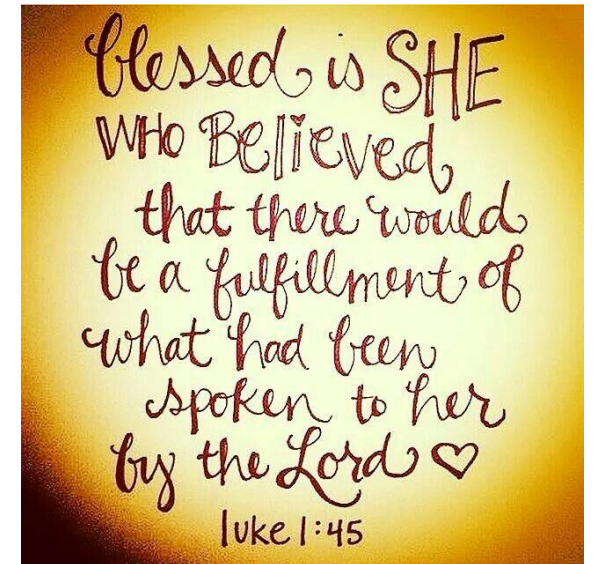 blessed is SHE
WHO BElieved
that there would
be a fulfillment of
what had been
spoken to her
by the Lord ♡
luke 1:45